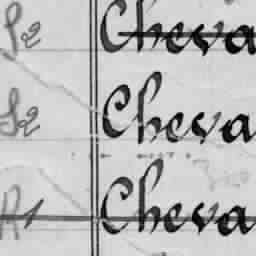 S2 Cheva
S2 Cheva
R1 Cheva